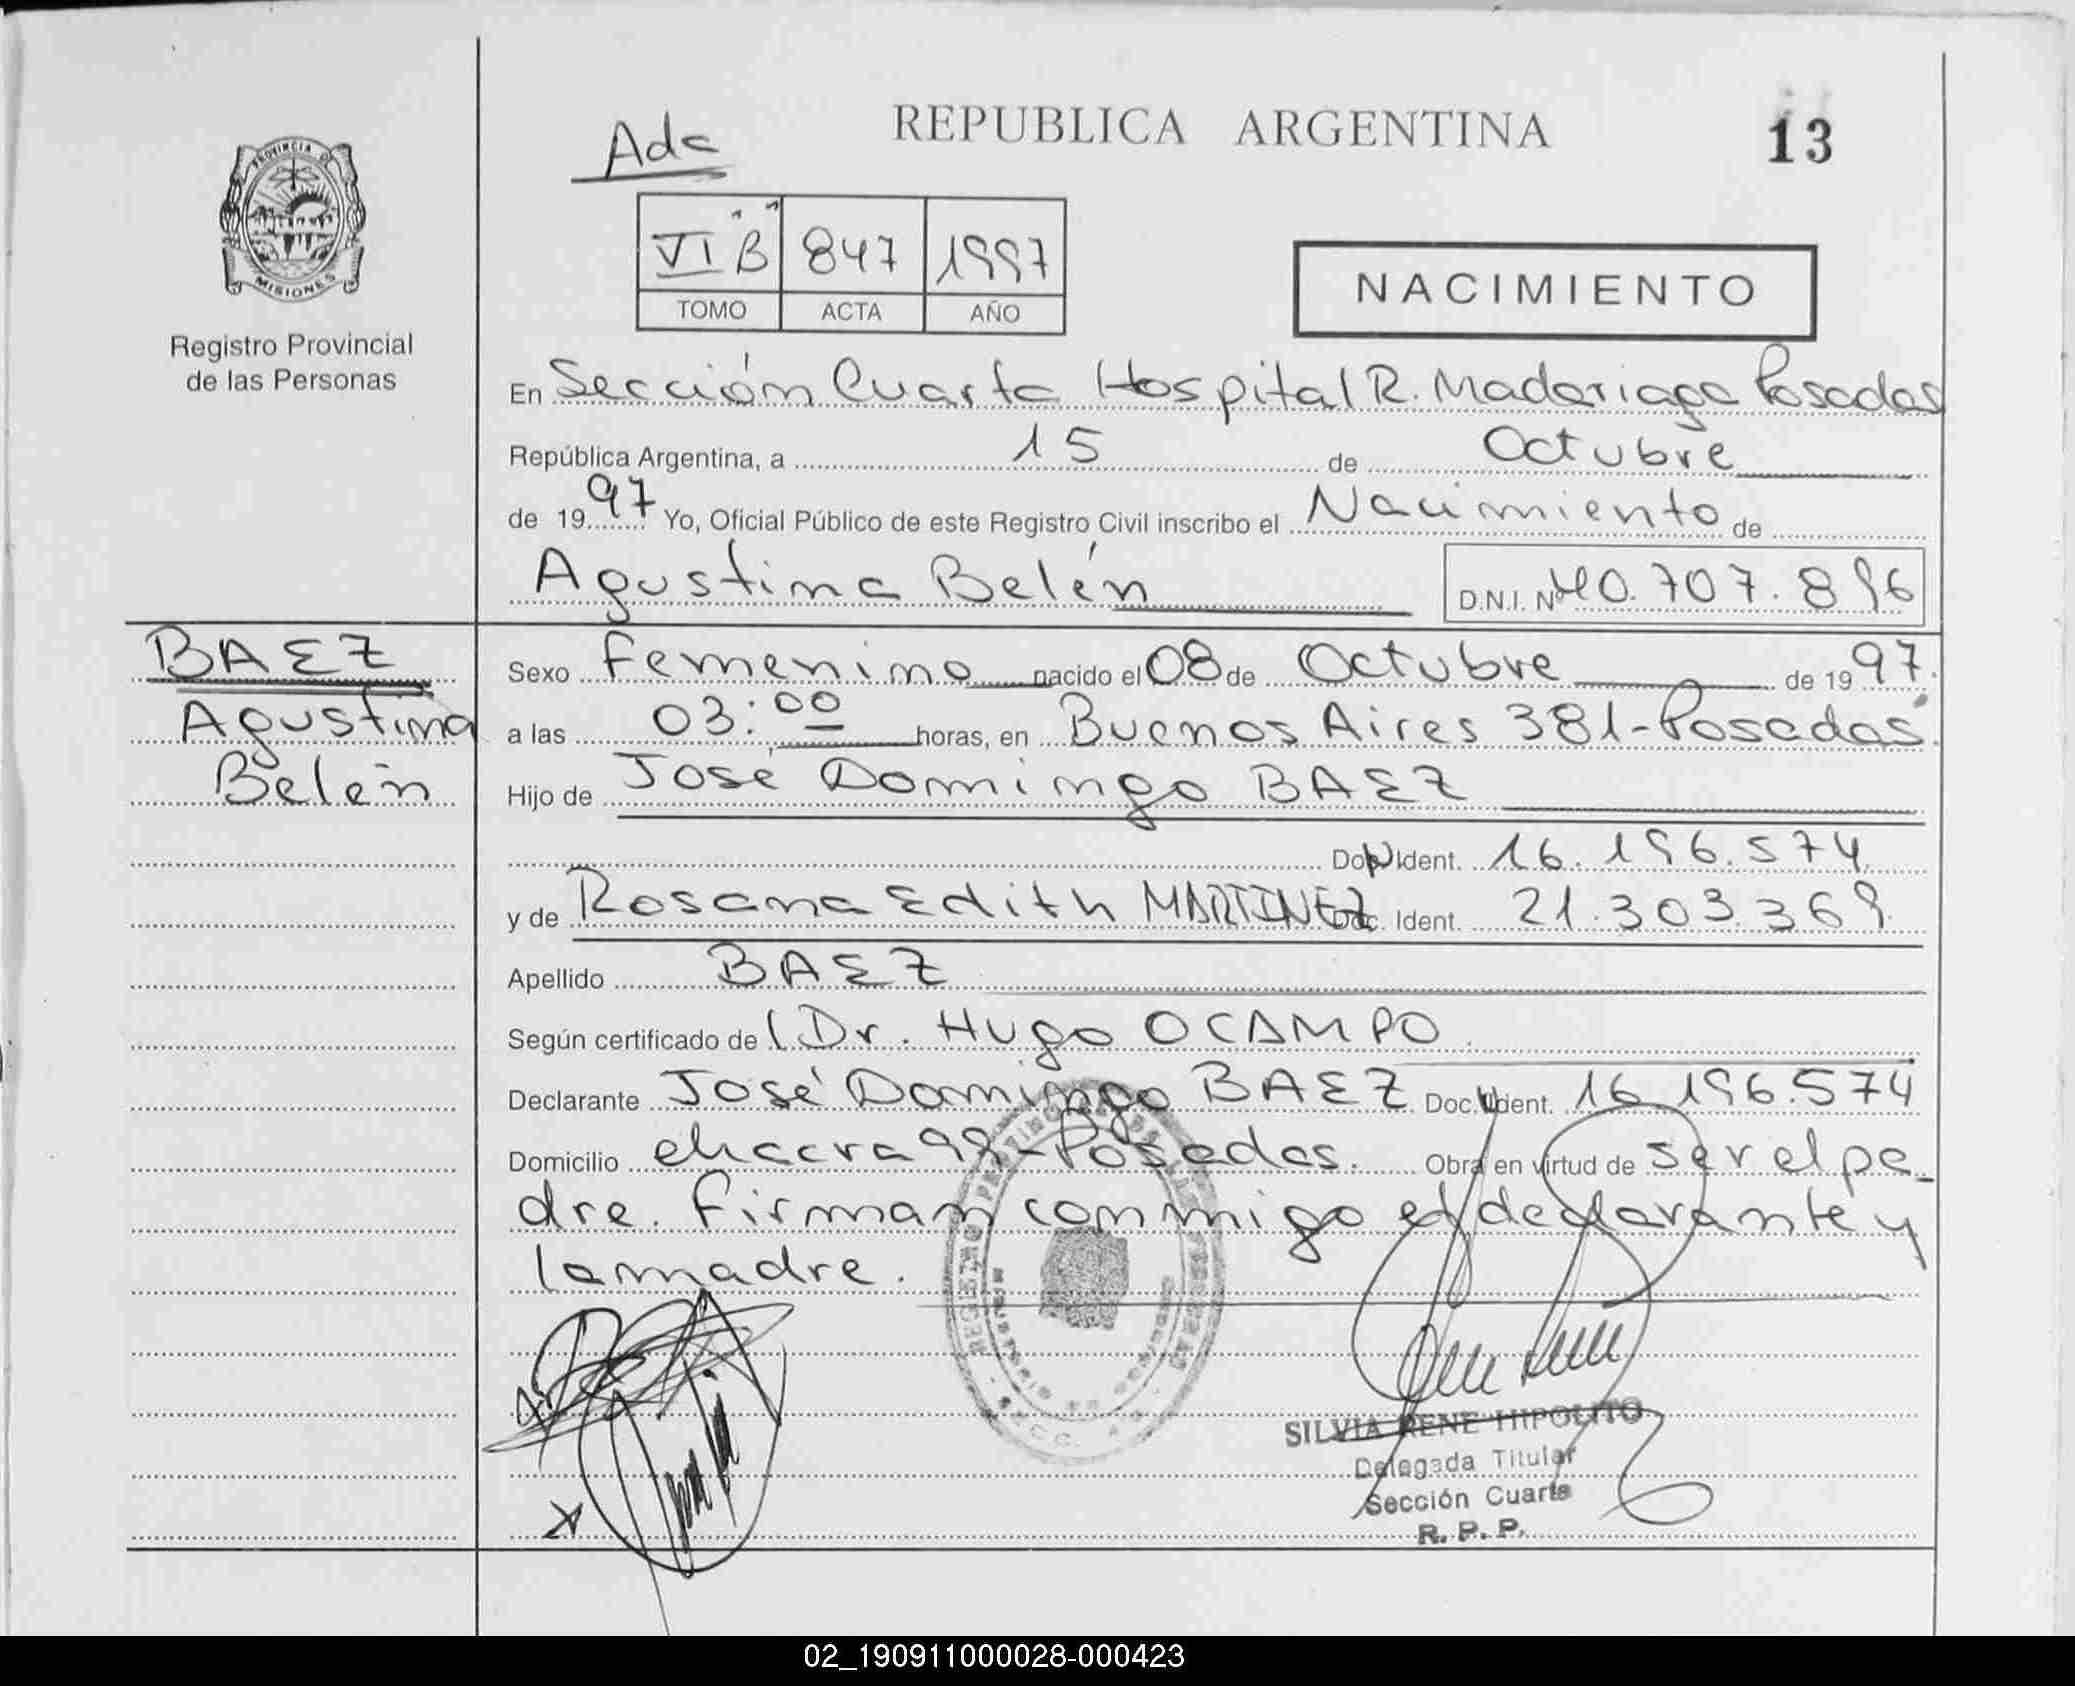 REPUBLICA ARGENTINA
13
Ada
VI B 847 1997
TOMO ACTA AÑO
NACIMIENTO
PROVINCIA DE
MISIONES
Registro Provincial
de las Personas
En Sección Cuarta Hospital R. Madariaga Posadas
República Argentina, a 15 de Octubre
de 1997 Yo, Oficial Público de este Registro Civil inscribo el Nacimiento de
Agustina Belén D.N.I. Nº 40.707.896
BAEZ
Agustina
Belén
Sexo Femenino nacido el 08 de Octubre de 1997.
a las 03:00 horas, en Buenos Aires 381-Posadas.
Hijo de José Domingo BAEZ
Doc. Ident. 16.196.574
y de Rosana Edith MARTINEZ Doc. Ident. 21.303.369.
Apellido BAEZ
Según certificado de l Dr. Hugo OCAMPO.
Declarante José Domingo BAEZ Doc. Ident. 16.196.574
Domicilio chacra 98-Posadas. Obra en virtud de ser el pa-
dre. Firman conmigo el declarante y
la madre.
SILVIA RENE HIPOLITO
Delegada Titular
Sección Cuarta
R. P. P.
02_190911000028-000423